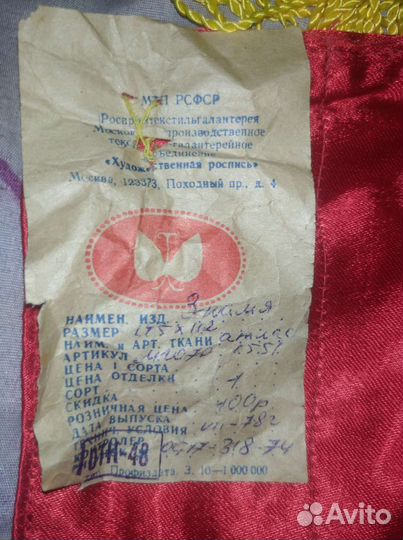 МЛП РСФСР
Росвро текстильгалантерея
Моско производственное
тек галантерейное
ъединение
«Худож ственная роспись»
Москва, 123373, Походный пр., д. 4
НАИМЕН. ИЗД. Знамя
РАЗМЕР 175 x 112
НАИМ. и АРТ. ТКАНИ атлас
АРТИКУЛ
ЦЕНА I СОРТА
ЦЕНА ОТДЕЛКИ
СОРТ 1
СКИДКА
РОЗНИЧНАЯ ЦЕНА 100р
ДАТА ВЫПУСКА VII-78г
УСЛОВИЯ 17-318-74
ЛЕР
РОТК-48
Профиздата. З. 10—1 000 000
Avito